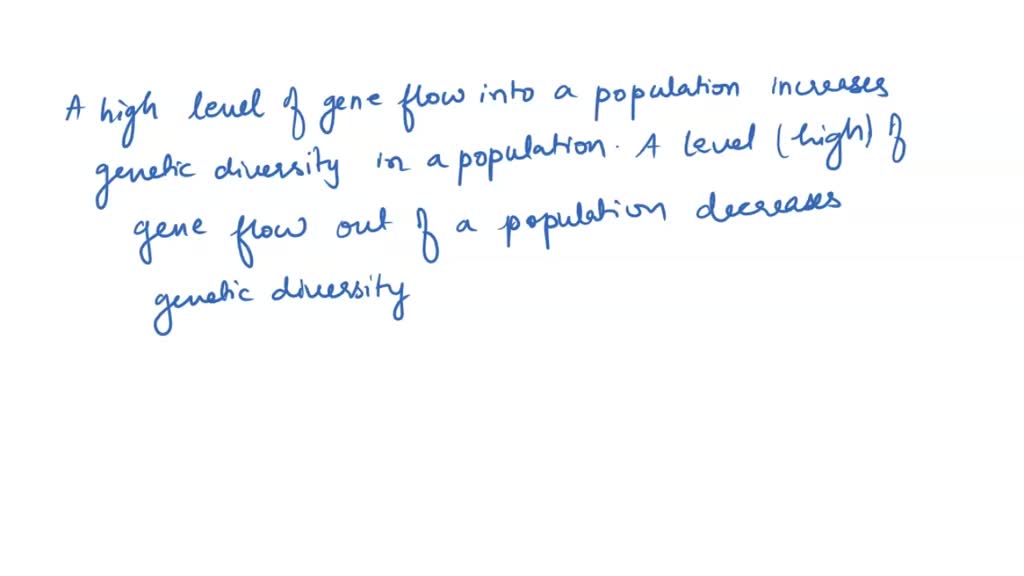 A high level of gene flow into a population increases
genetic diversity in a population. A level (high) of
gene flow out of a population decreases
genetic diversity